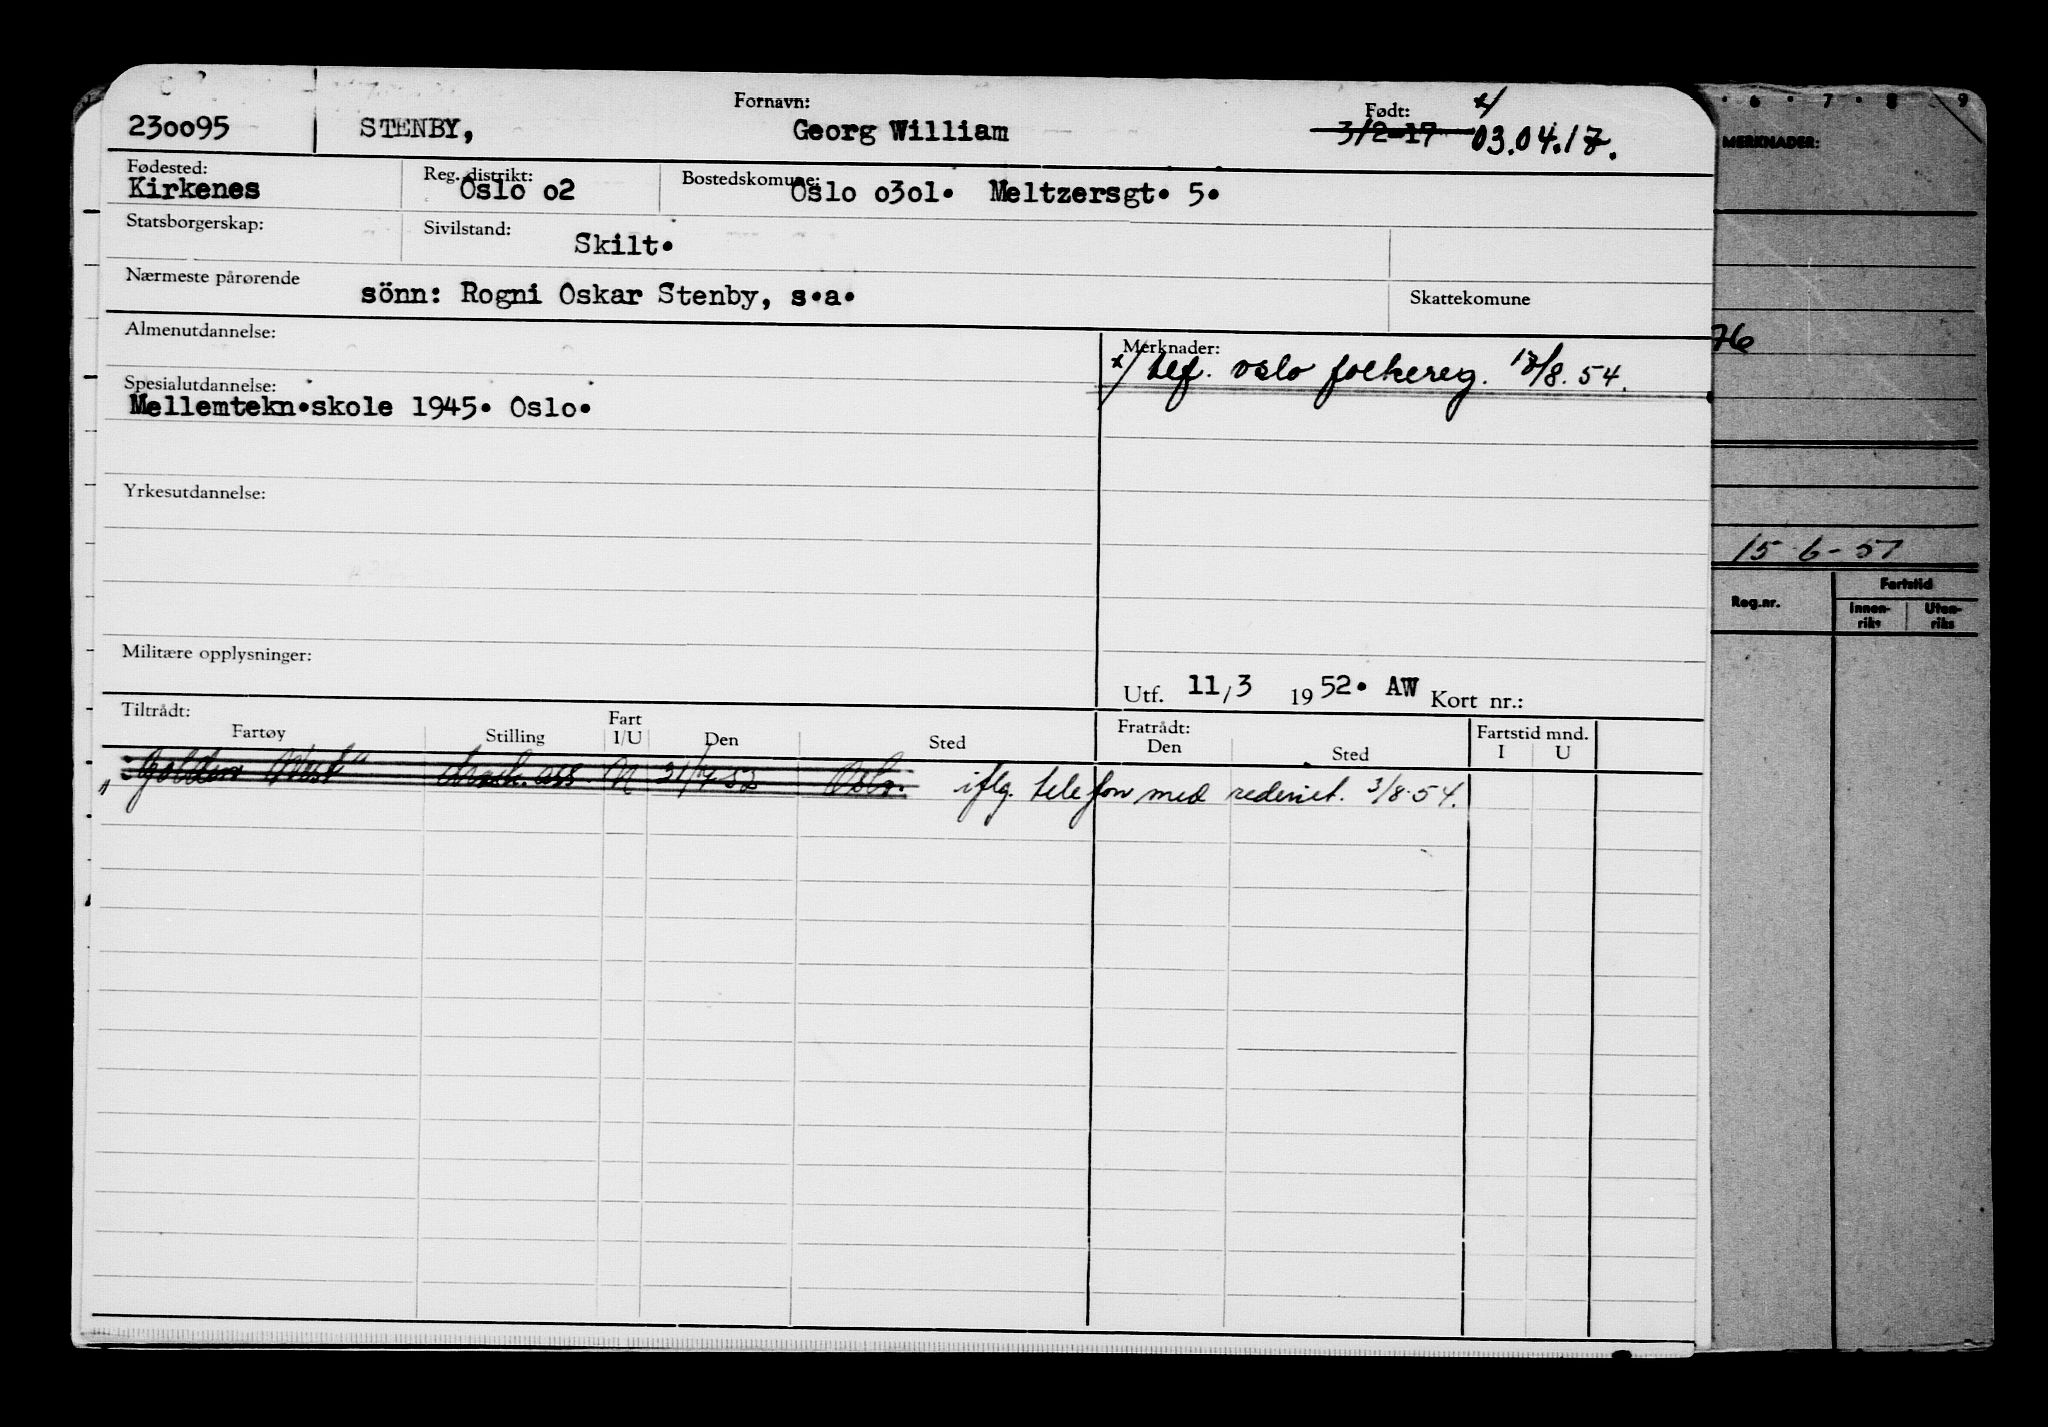 Fornavn: Født: x/
230095 STENBY, Georg William 3/2-17 03.04.17.
Fødested: Reg. distrikt: Bostedskomune:
Kirkenes Oslo o2 Oslo o3o1. Meltzersgt. 5.
Statsborgerskap: Sivilstand:
Skilt.
Nærmeste pårørende
sönn: Rogni Oskar Stenby, s.a. Skattekomune
Almenutdannelse: Merknader:
x/ tlf. oslo folkereg. 13/8. 54.
Spesialutdannelse:
Mellemtekn.skole 1945. Oslo.
Yrkesutdannelse:
Militære opplysninger:
Utf. 11/3 1952. AW Kort nr.:
Tiltrådt: Fratrådt: Fartstid mnd.
Fartøy Stilling Fart I/U Den Sted Den Sted I U
"Golden West" ass. U Oslo. iflg. telefon med rederiet. 3/8.54.
6 7 8 9
MERKNADER:
76
15-6-51
Reg.nr. Fartstid
Innen-riks Uten-riks